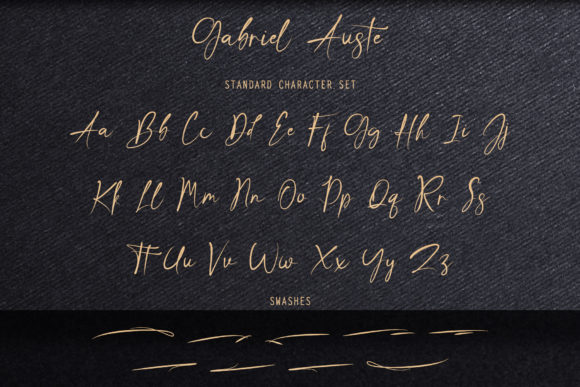 Gabriel Auste
STANDARD CHARACTER SET
Aa Bb Cc Dd Ee Ff Gg Hh Ii Jj
Kk Ll Mm Nn Oo Pp Qq Rr Ss
Tt Uu Vv Ww Xx Yy Zz
SWASHES